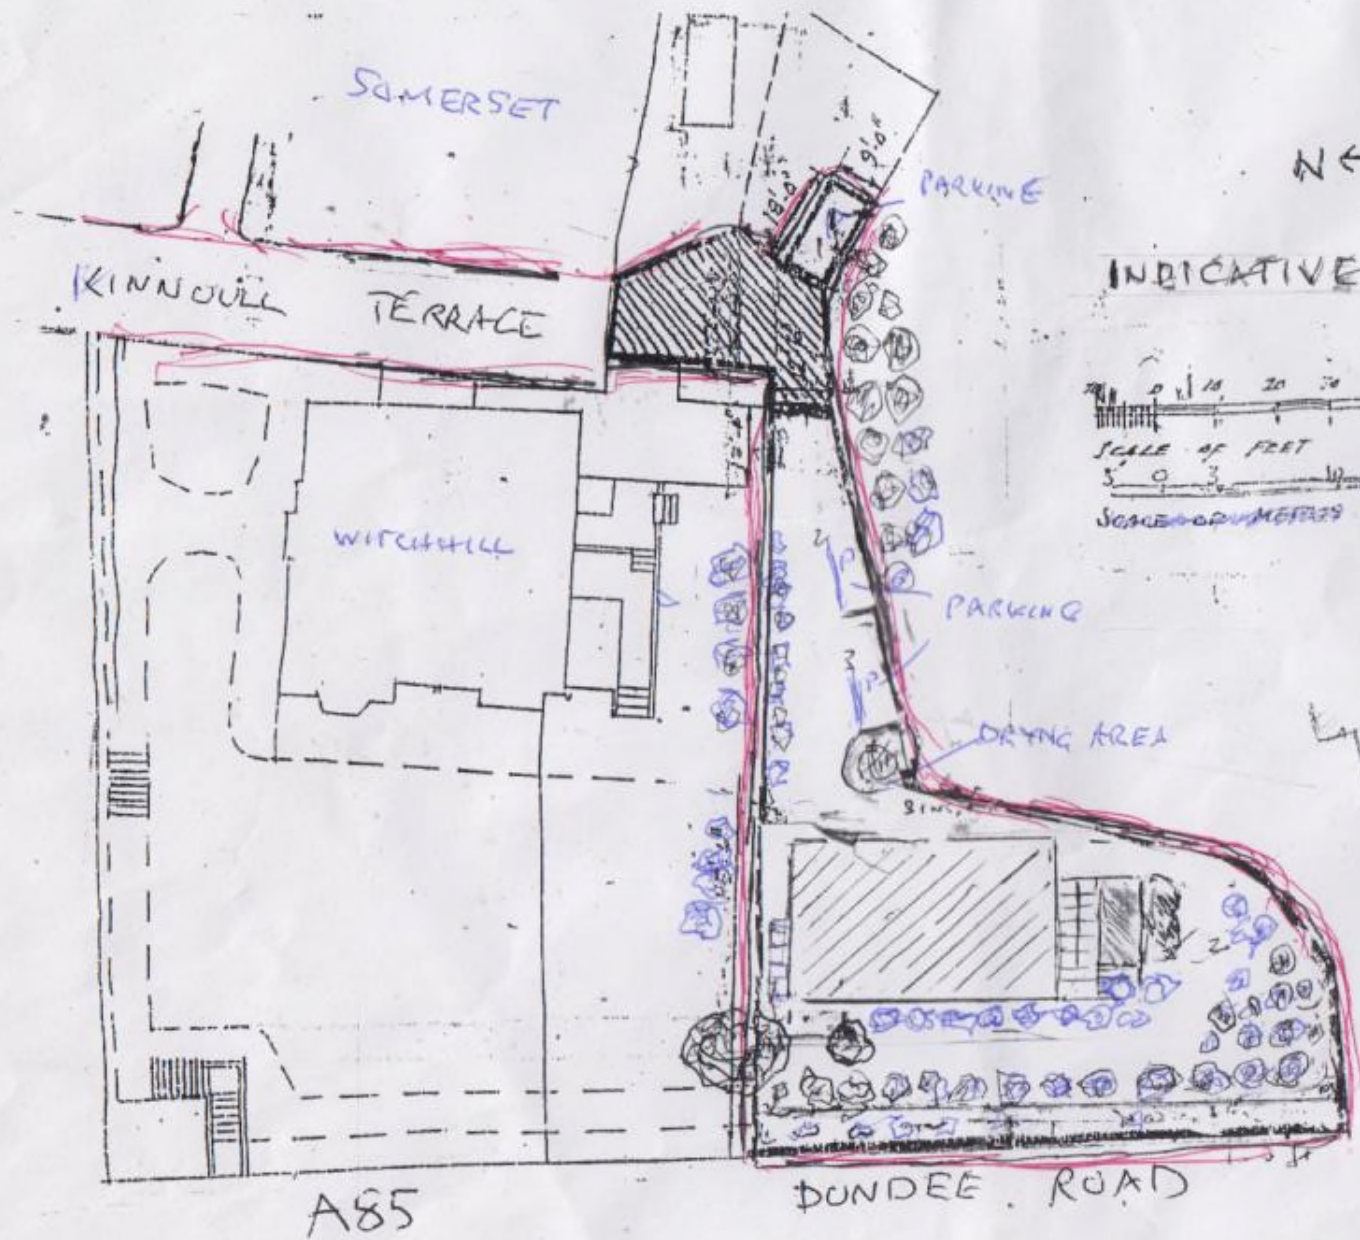 SOMERSET
9'.0"
PARKING
18'.0"
N ←
INDICATIVE
KINNOULL TERRACE
0 10 20 30
SCALE OF FEET
5 0 5 10
SCALE OF METERS
WITCHHILL
PARKING
P
P
DRYING AREA
A85
DUNDEE ROAD